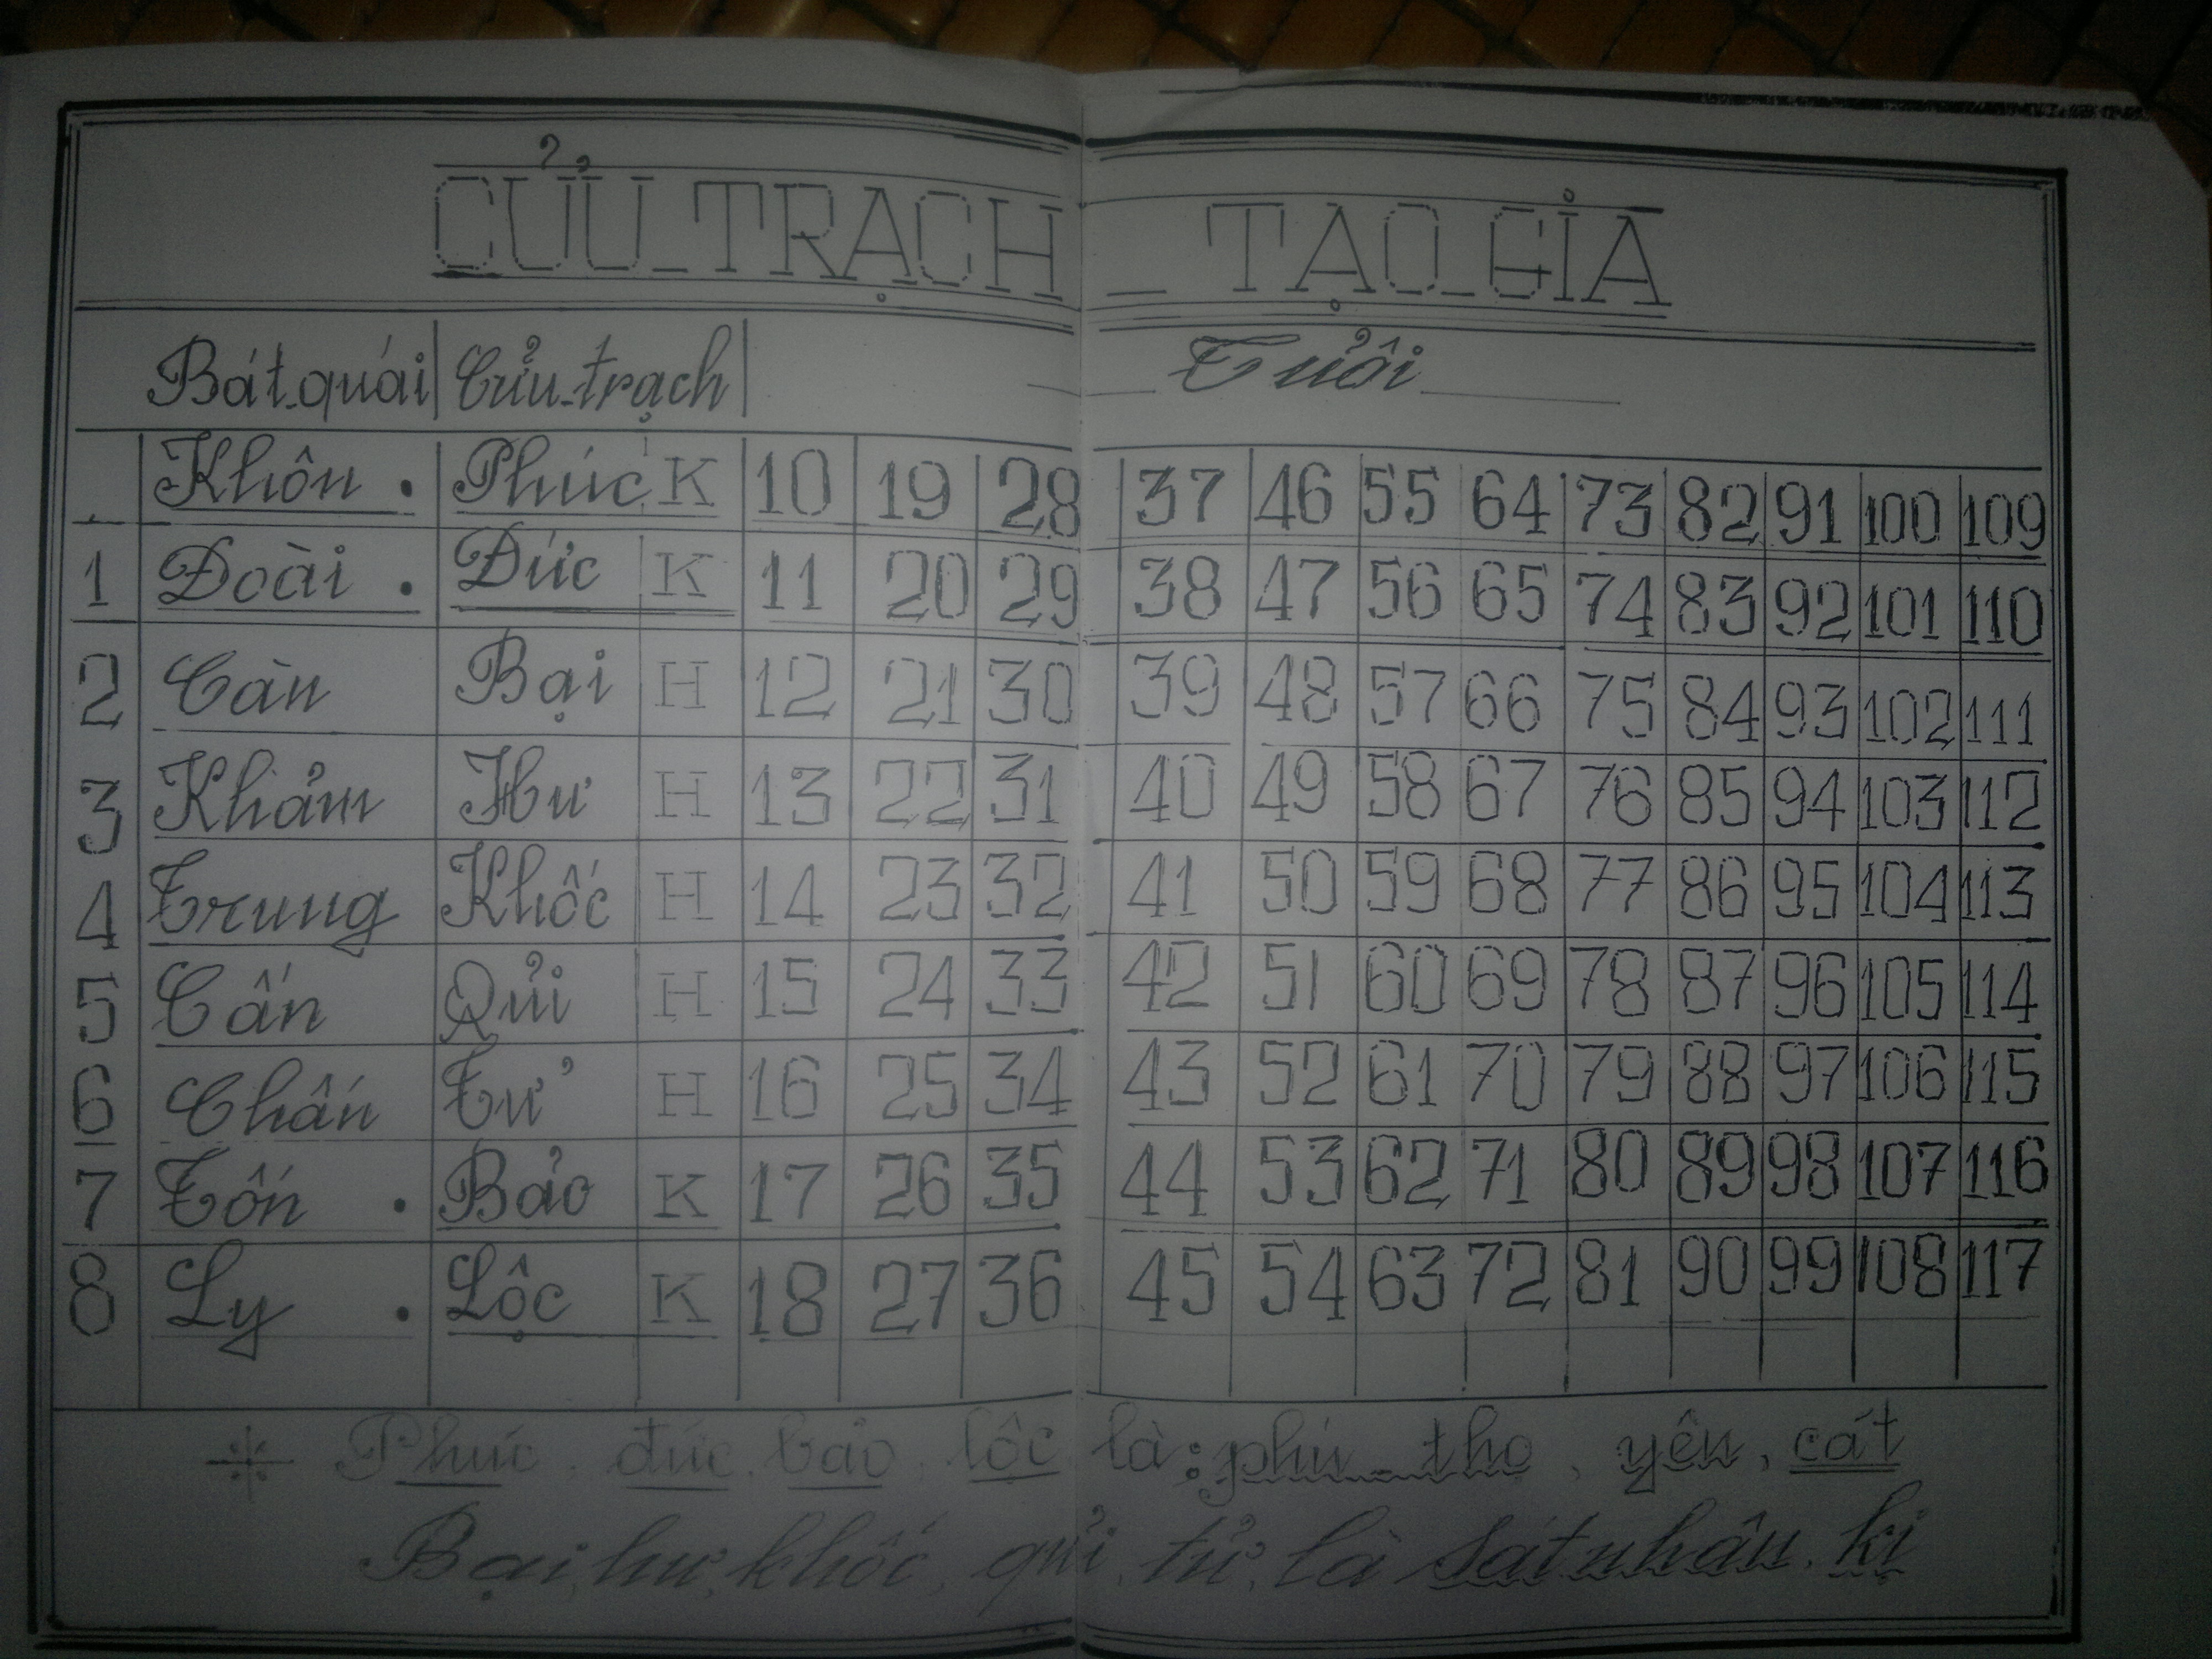 CỬU_TRẠCH _ TẠO_GIA
Bát_quái Cửu_trạch Tuổi
Khôn . Phúc K 10 19 28 37 46 55 64 73 82 91 100 109
1 Đoài . Đức K 11 20 29 38 47 56 65 74 83 92 101 110
2 Càn Bại H 12 21 30 39 48 57 66 75 84 93 102 111
3 Khảm Hư H 13 22 31 40 49 58 67 76 85 94 103 112
4 Trung Khốc H 14 23 32 41 50 59 68 77 86 95 104 113
5 Cấn Qủi H 15 24 33 42 51 60 69 78 87 96 105 114
6 Chấn Tử H 16 25 34 43 52 61 70 79 88 97 106 115
7 Tốn . Bảo K 17 26 35 44 53 62 71 80 89 98 107 116
8 Ly . Lộc K 18 27 36 45 54 63 72 81 90 99 108 117
* Phúc, đức, bảo, lộc là: phú_thọ, yên, cát
Bại, hư, khốc, qủi, tử, là sát nhân, kị